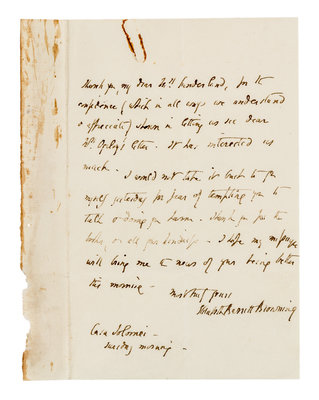 Thank you, my dear Mrs Kinderland, for the
confidence (which in all ways we understand
& appreciate) shown in letting us see dear
Mr Ogilvy's letter. It has interested us
much. I would not take it back to you
myself yesterday for fear of tempting you to
talk & doing you harm. Thank you for the
on all your kindness. I hope my
will bring me news of your being better
this morning.
most truly yours
Elizabeth Barrett Browning
Casa Solomei.
Tuesday morning.